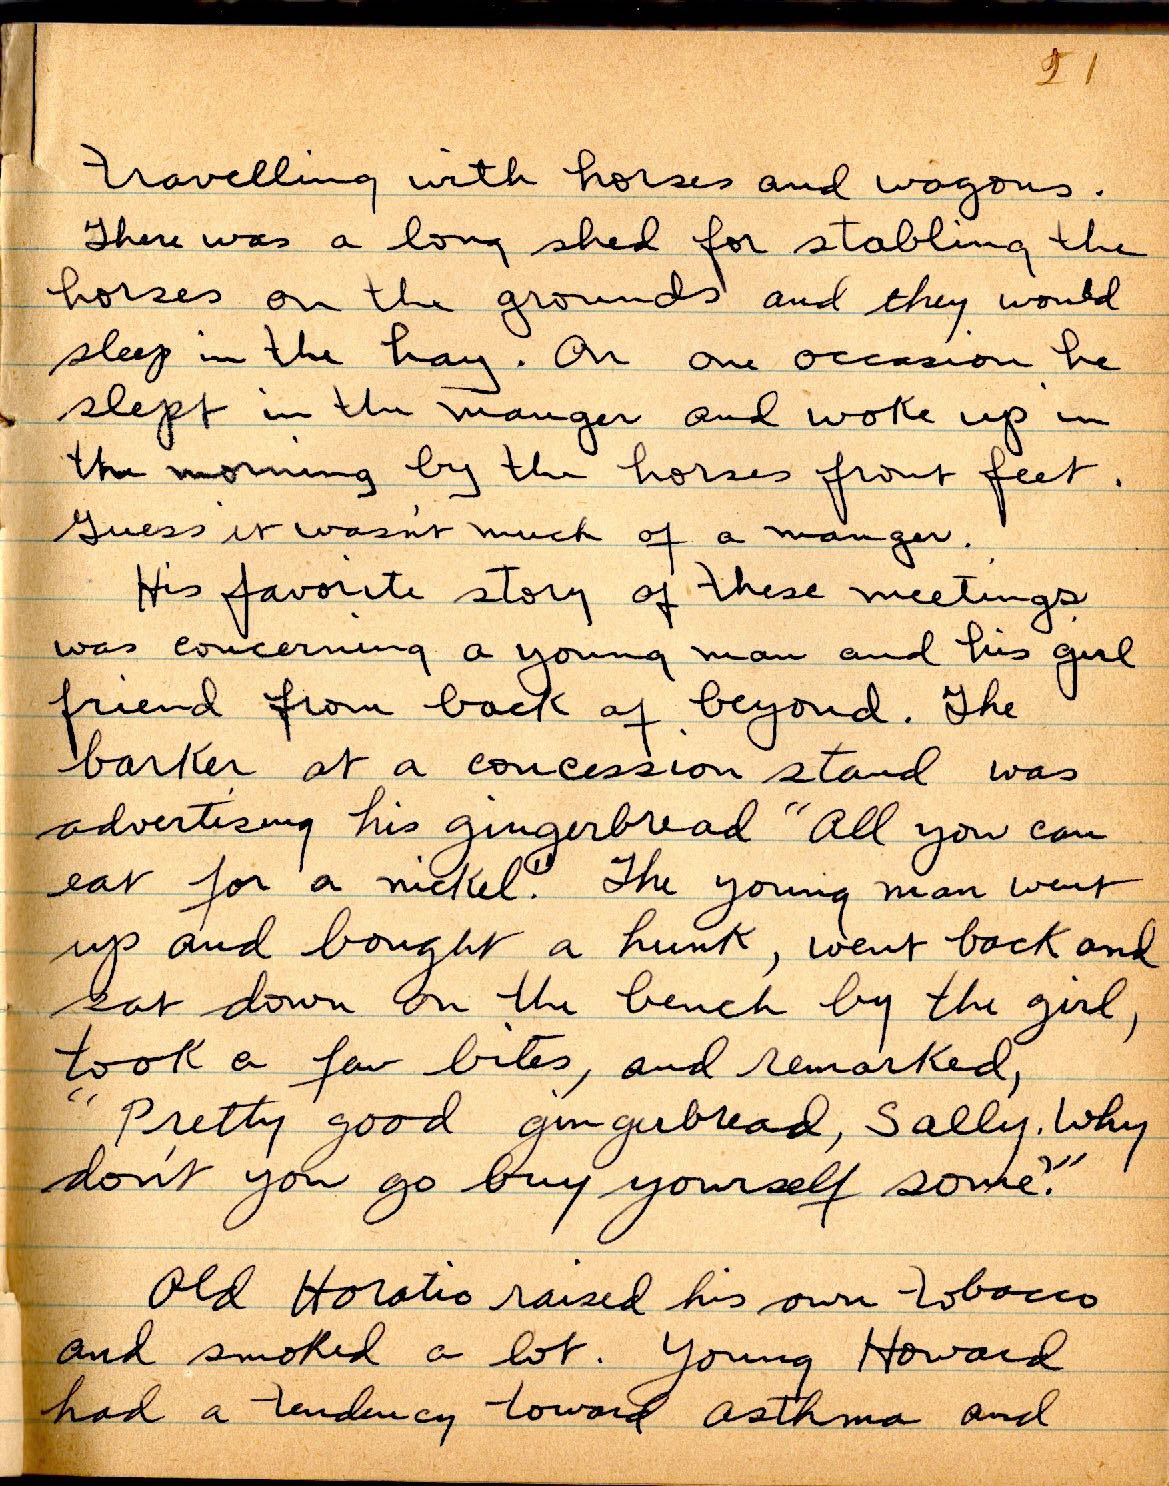 21
travelling with horses and wagons.
There was a long shed for stabling the
horses on the grounds and they would
sleep in the hay. On one occasion he
slept in the manger and woke up in
the morning by the horses front feet.
Guess it wasn't much of a manger.
His favorite story of these meetings
was concerning a young man and his girl
friend from back of beyond. The
barker at a concession stand was
advertising his gingerbread "All you can
eat for a nickel". The young man went
up and bought a hunk, went back and
sat down on the bench by the girl,
took a few bites, and remarked,
"Pretty good gingerbread, Sally. Why
don't you go buy yourself some?"
Old Horatio raised his own tobacco
and smoked a lot. Young Howard
had a tendency toward asthma and